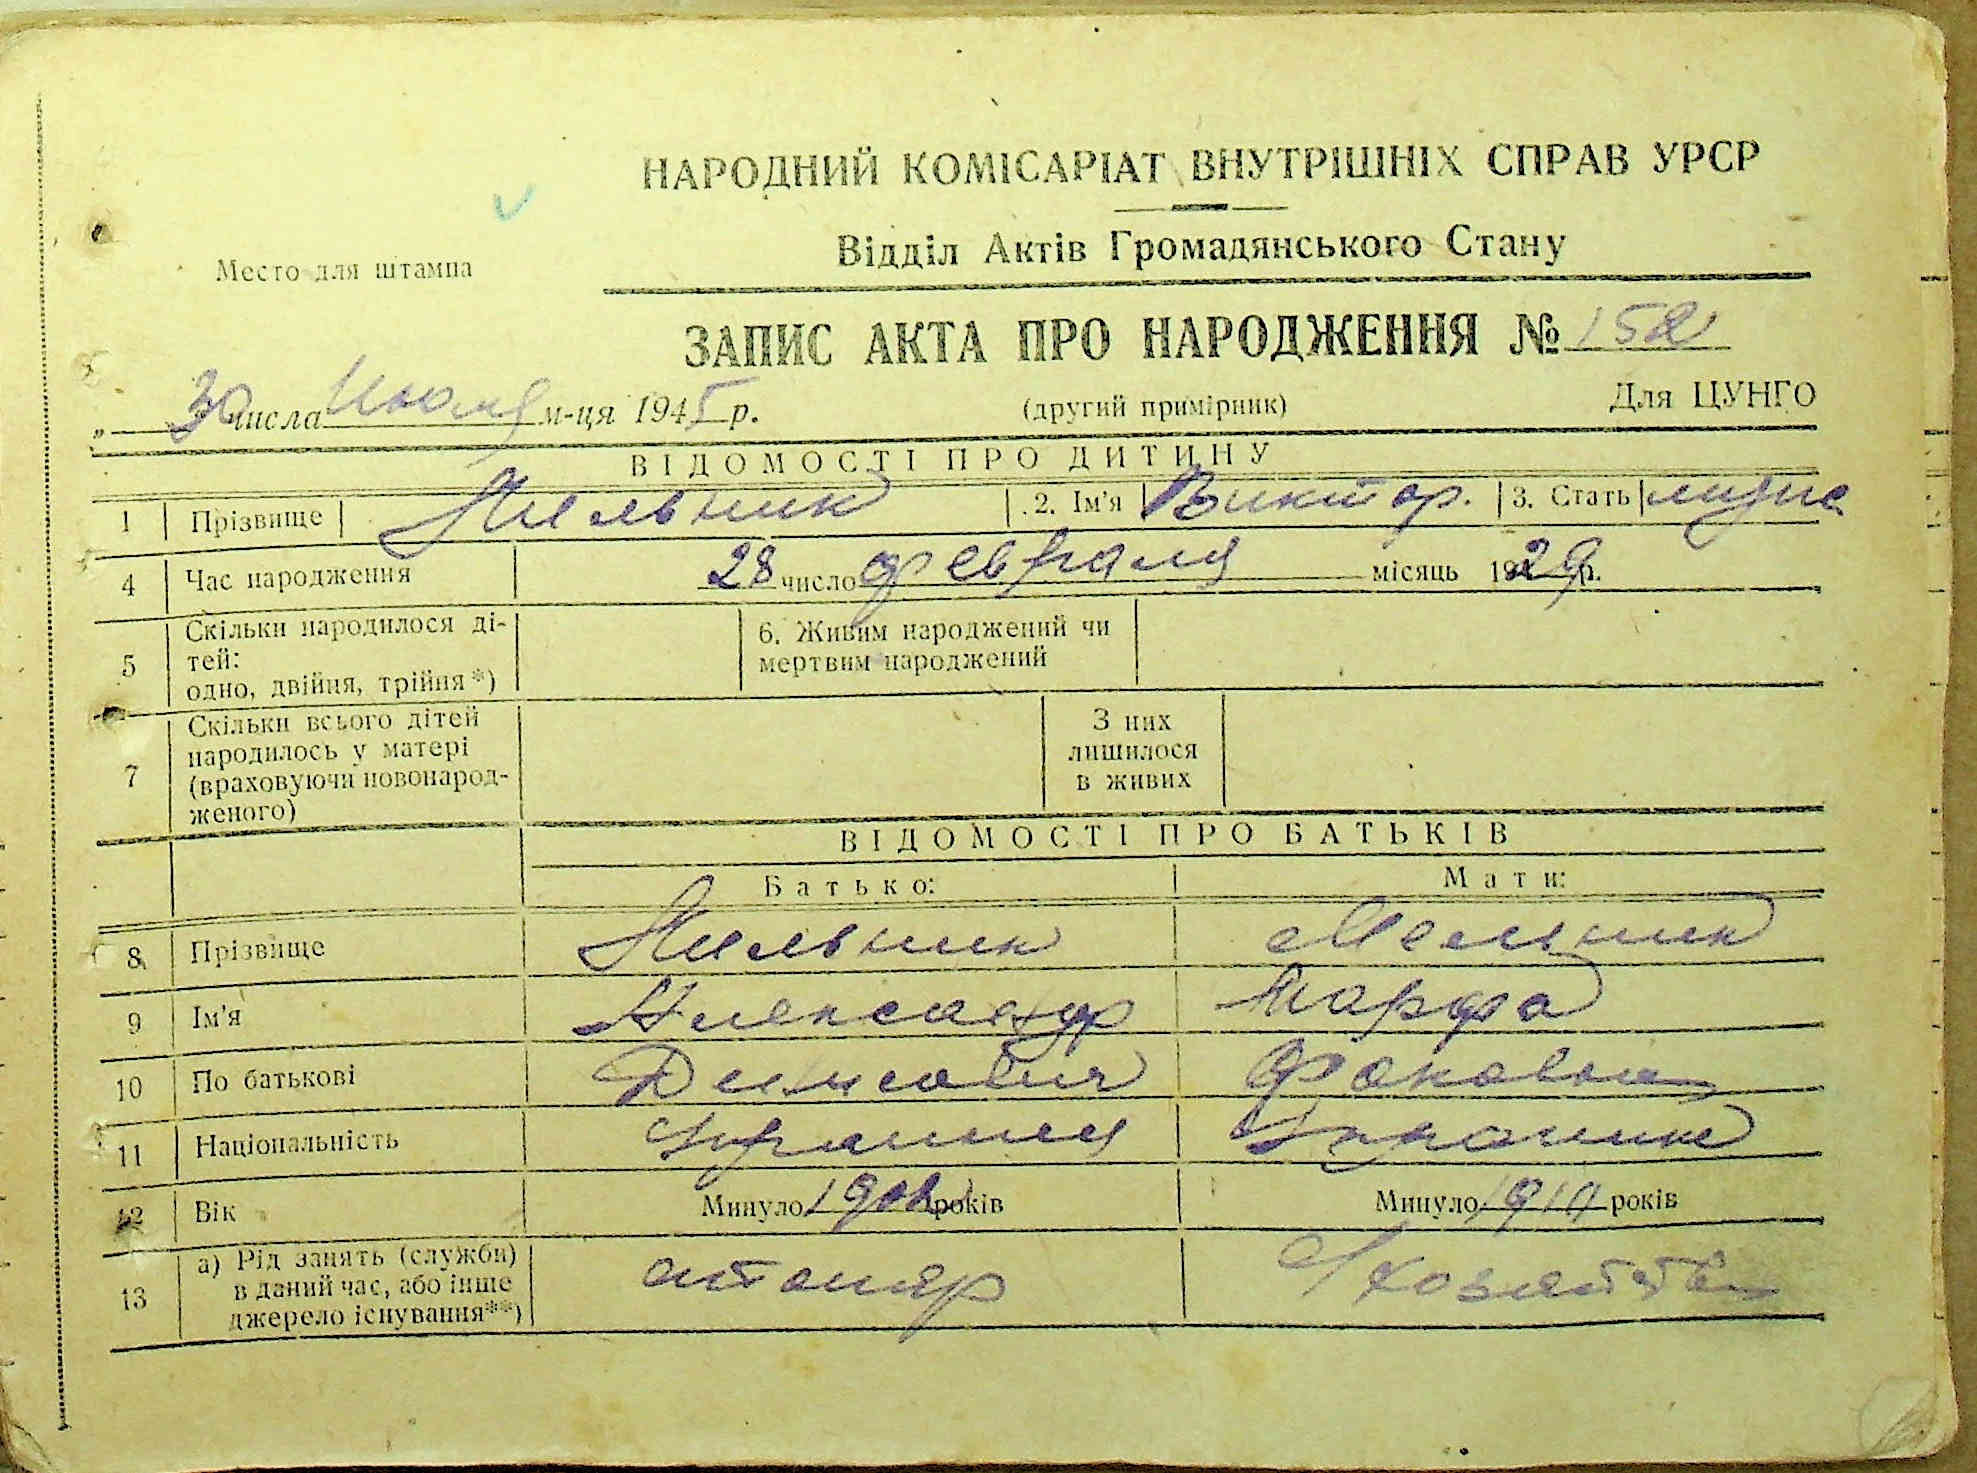 НАРОДНИЙ КОМІСАРІАТ ВНУТРІШНІХ СПРАВ УРСР
Відділ Актів Громадянського Стану
Место для штампа
ЗАПИС АКТА ПРО НАРОДЖЕННЯ № 152
„ 30 числа Июля м-ця 1945 р. (другий примірник) Для ЦУНГО
ВІДОМОСТІ ПРО ДИТИНУ
1 Прізвище Мельник 2. Ім'я Виктор. 3. Стать
4 Час народження 28 число февраля місяць 1929 р.
5 Скільки народилося ді-
тей:
одно, двійня, трійня*)
6. Живим народжений чи
мертвим народжений
7 Скільки всього дітей
народилось у матері
(враховуючи новонарод-
женого)
З них
лишилося
в живих
ВІДОМОСТІ ПРО БАТЬКІВ
Батько: Мати:
8 Прізвище Мельник Мельник
9 Ім'я Александр Марфа
10 По батькові Денисович Фоковна
11 Національність Украинец Украинка
12 Вік Минуло років Минуло 1910 років
13 а) Рід занять (служби)
в даний час, або інше
джерело існування**)
столяр Д/хозяйства